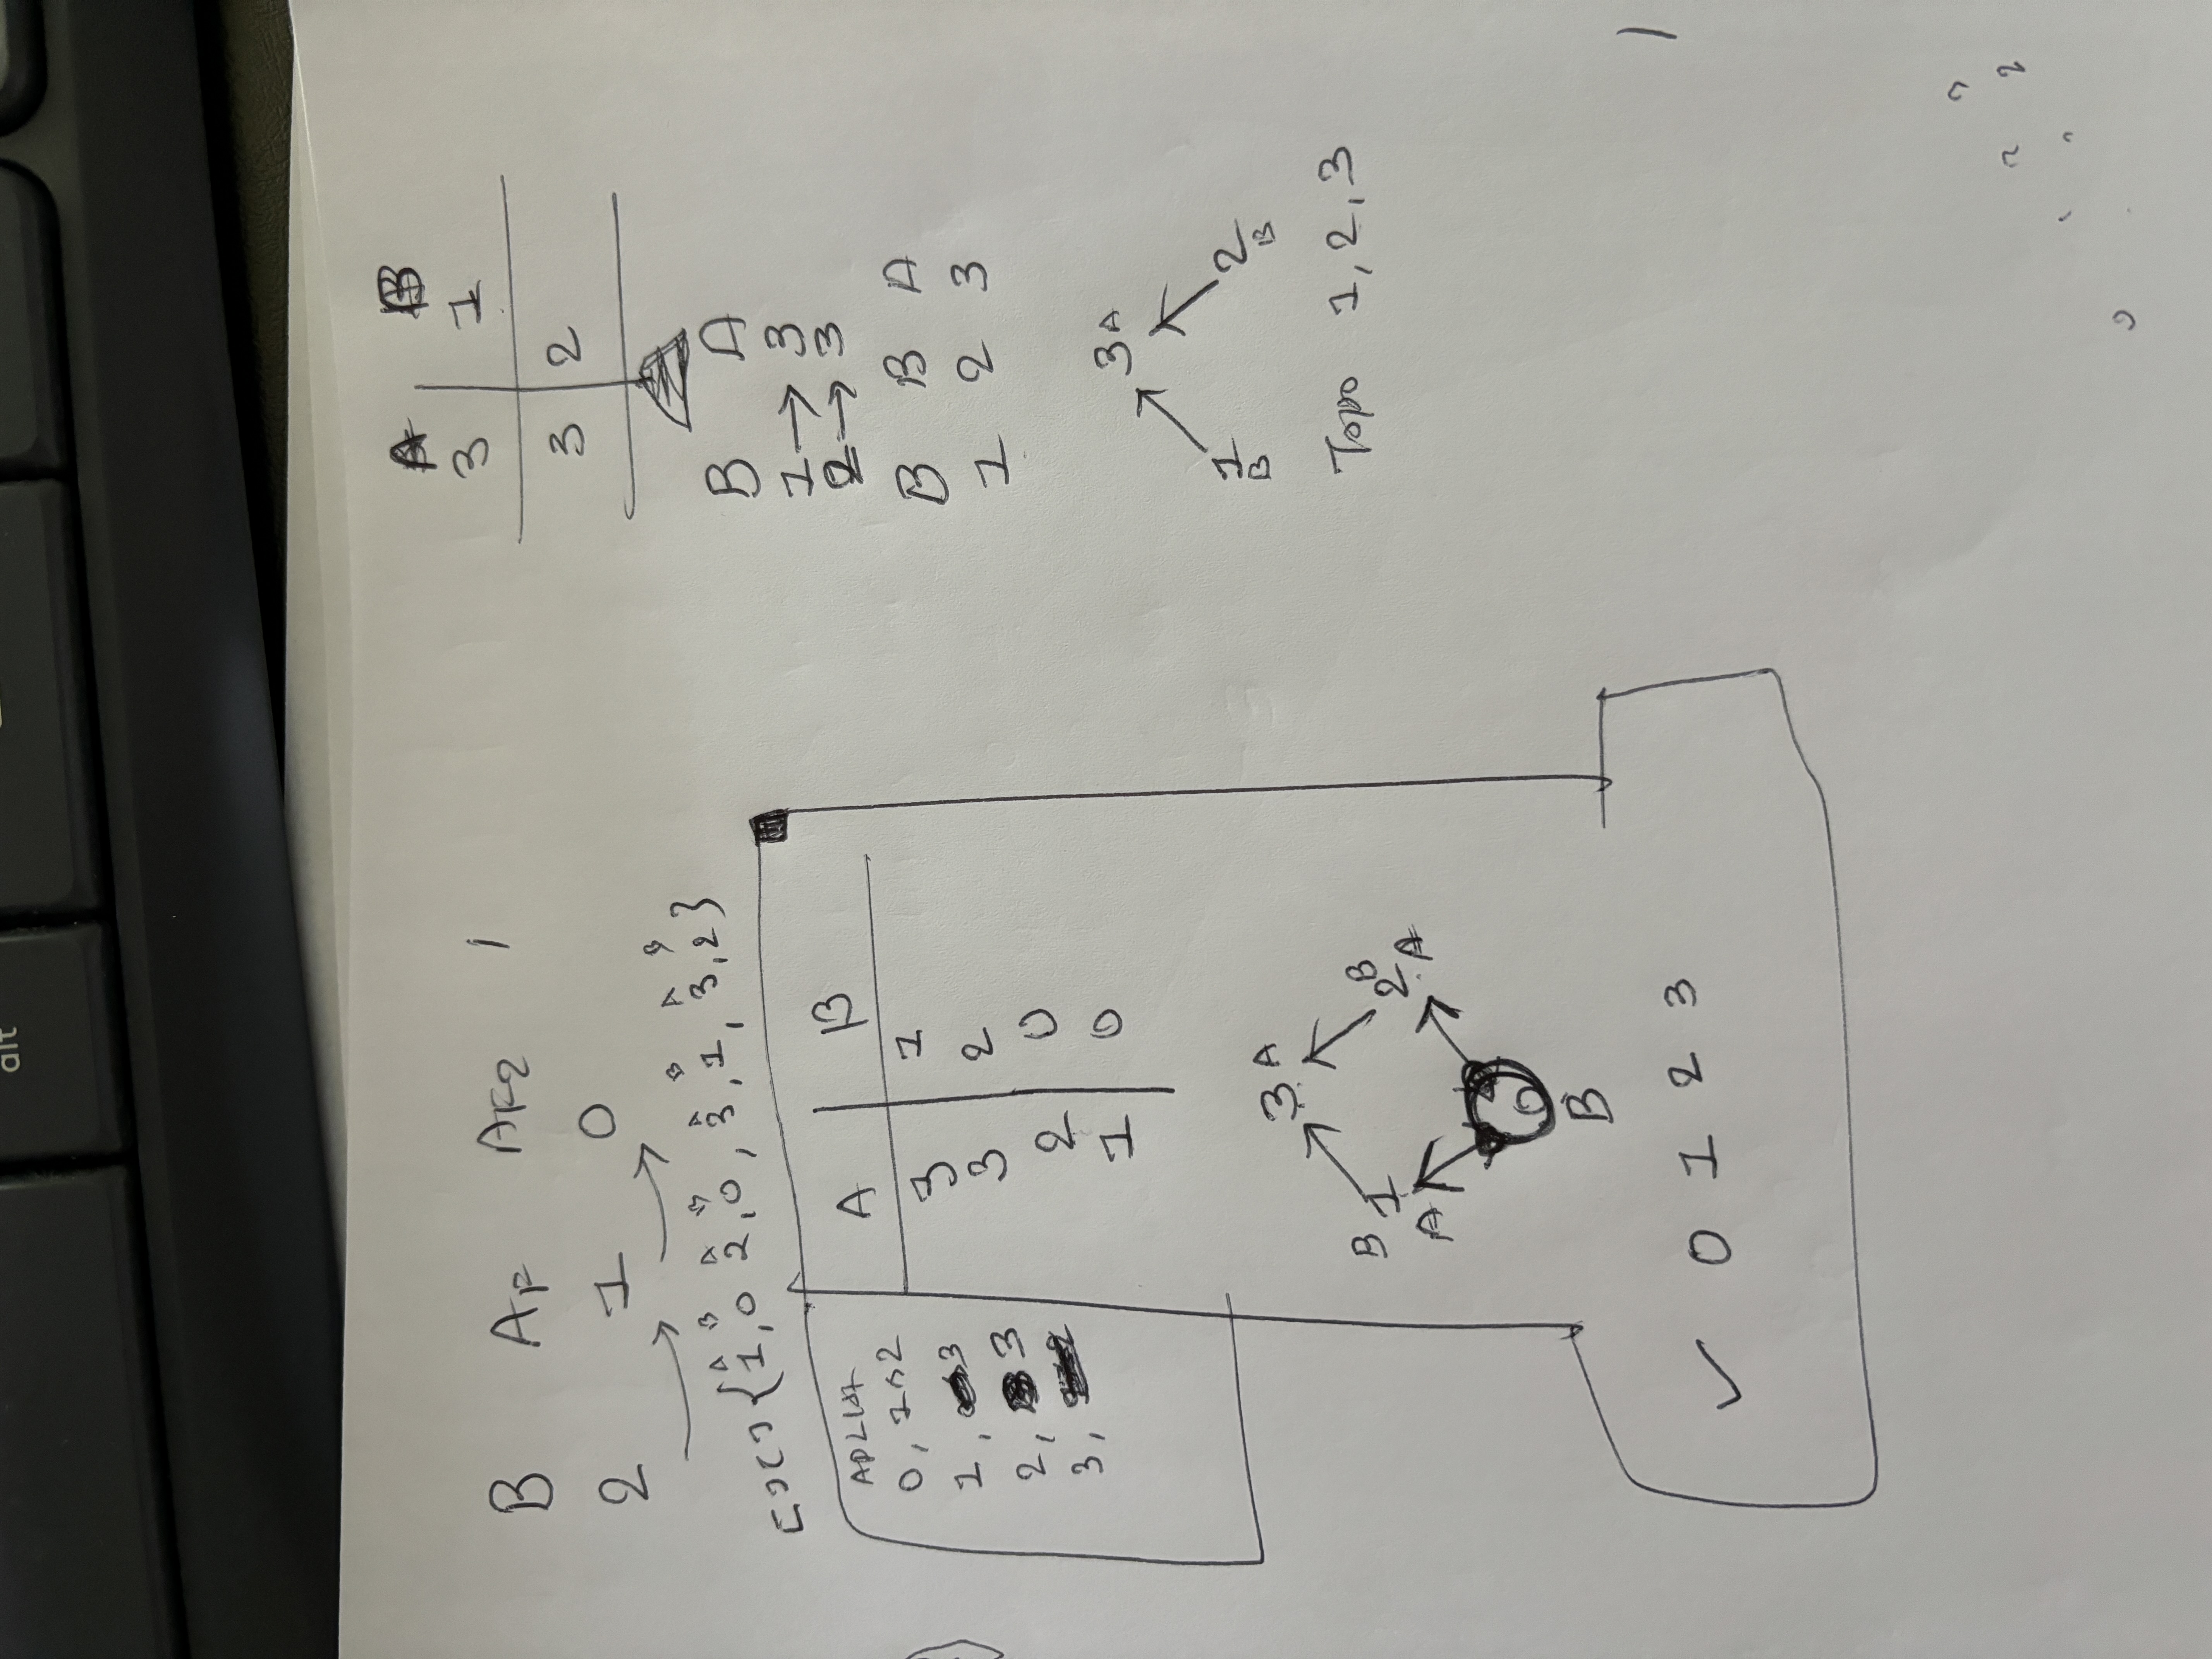 alt
B AF AF2 1
2 1 0
[][]{1,0 2,0, 3,1, 3,2}
A B A B A B A B
ADLIst
0, 1 2
1, 3
2, 3
3,
A B
3 1
3 2
2 0
1 0
3 A
B 1 2 B
A A
0
B
✓ 0 1 2 3
A B
3 1
3 2
B A
1 → 3
2 → 3
B B A
1 2 3
3 A
1 2
B B
Topo 1, 2, 3